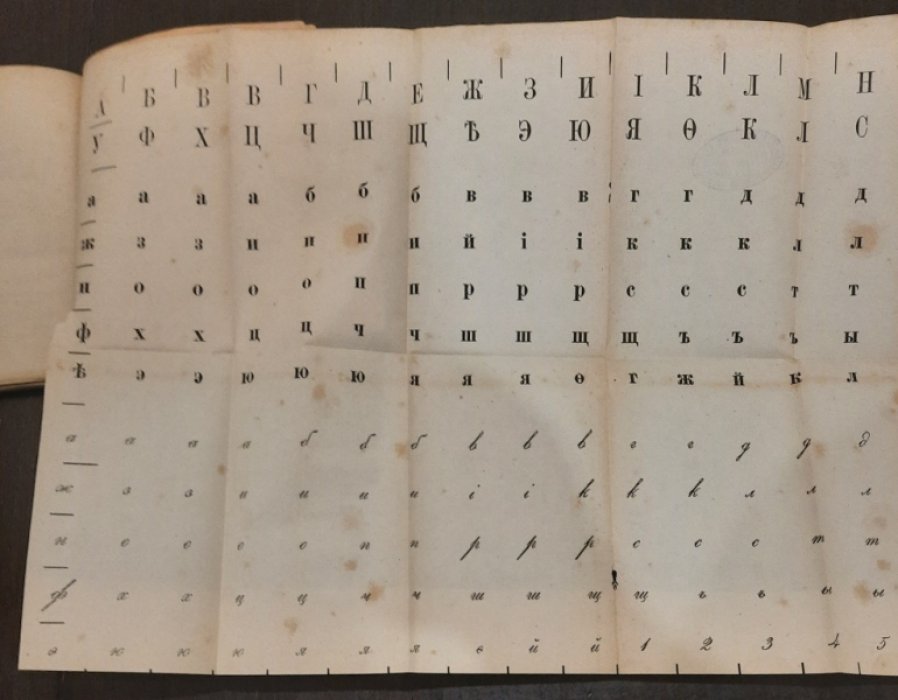 А Б В В Г Д Е Ж З И І К Л М Н
У Ф Х Ц Ч Ш Щ Ѣ Э Ю Я Ѳ К Л С
а а а а б б б в в в г г д д д
ж з з и и и и й і і к к к л л
п о о о о п п р р р с с с т т
ф х х ц ц ч ч ш ш щ щ ъ ъ ъ ы
ѣ э э ю ю ю я я я ѳ г ж й к л
а а а а б б б в в в г г д д д
ж з з и и и и і і к к к л л л
н о о о о п п р р р с с с т т
ф х х ц ц ч ч ш ш щ щ ь ь ы ы
э ю ю ю я я я ѳ й й 1 2 3 4 5